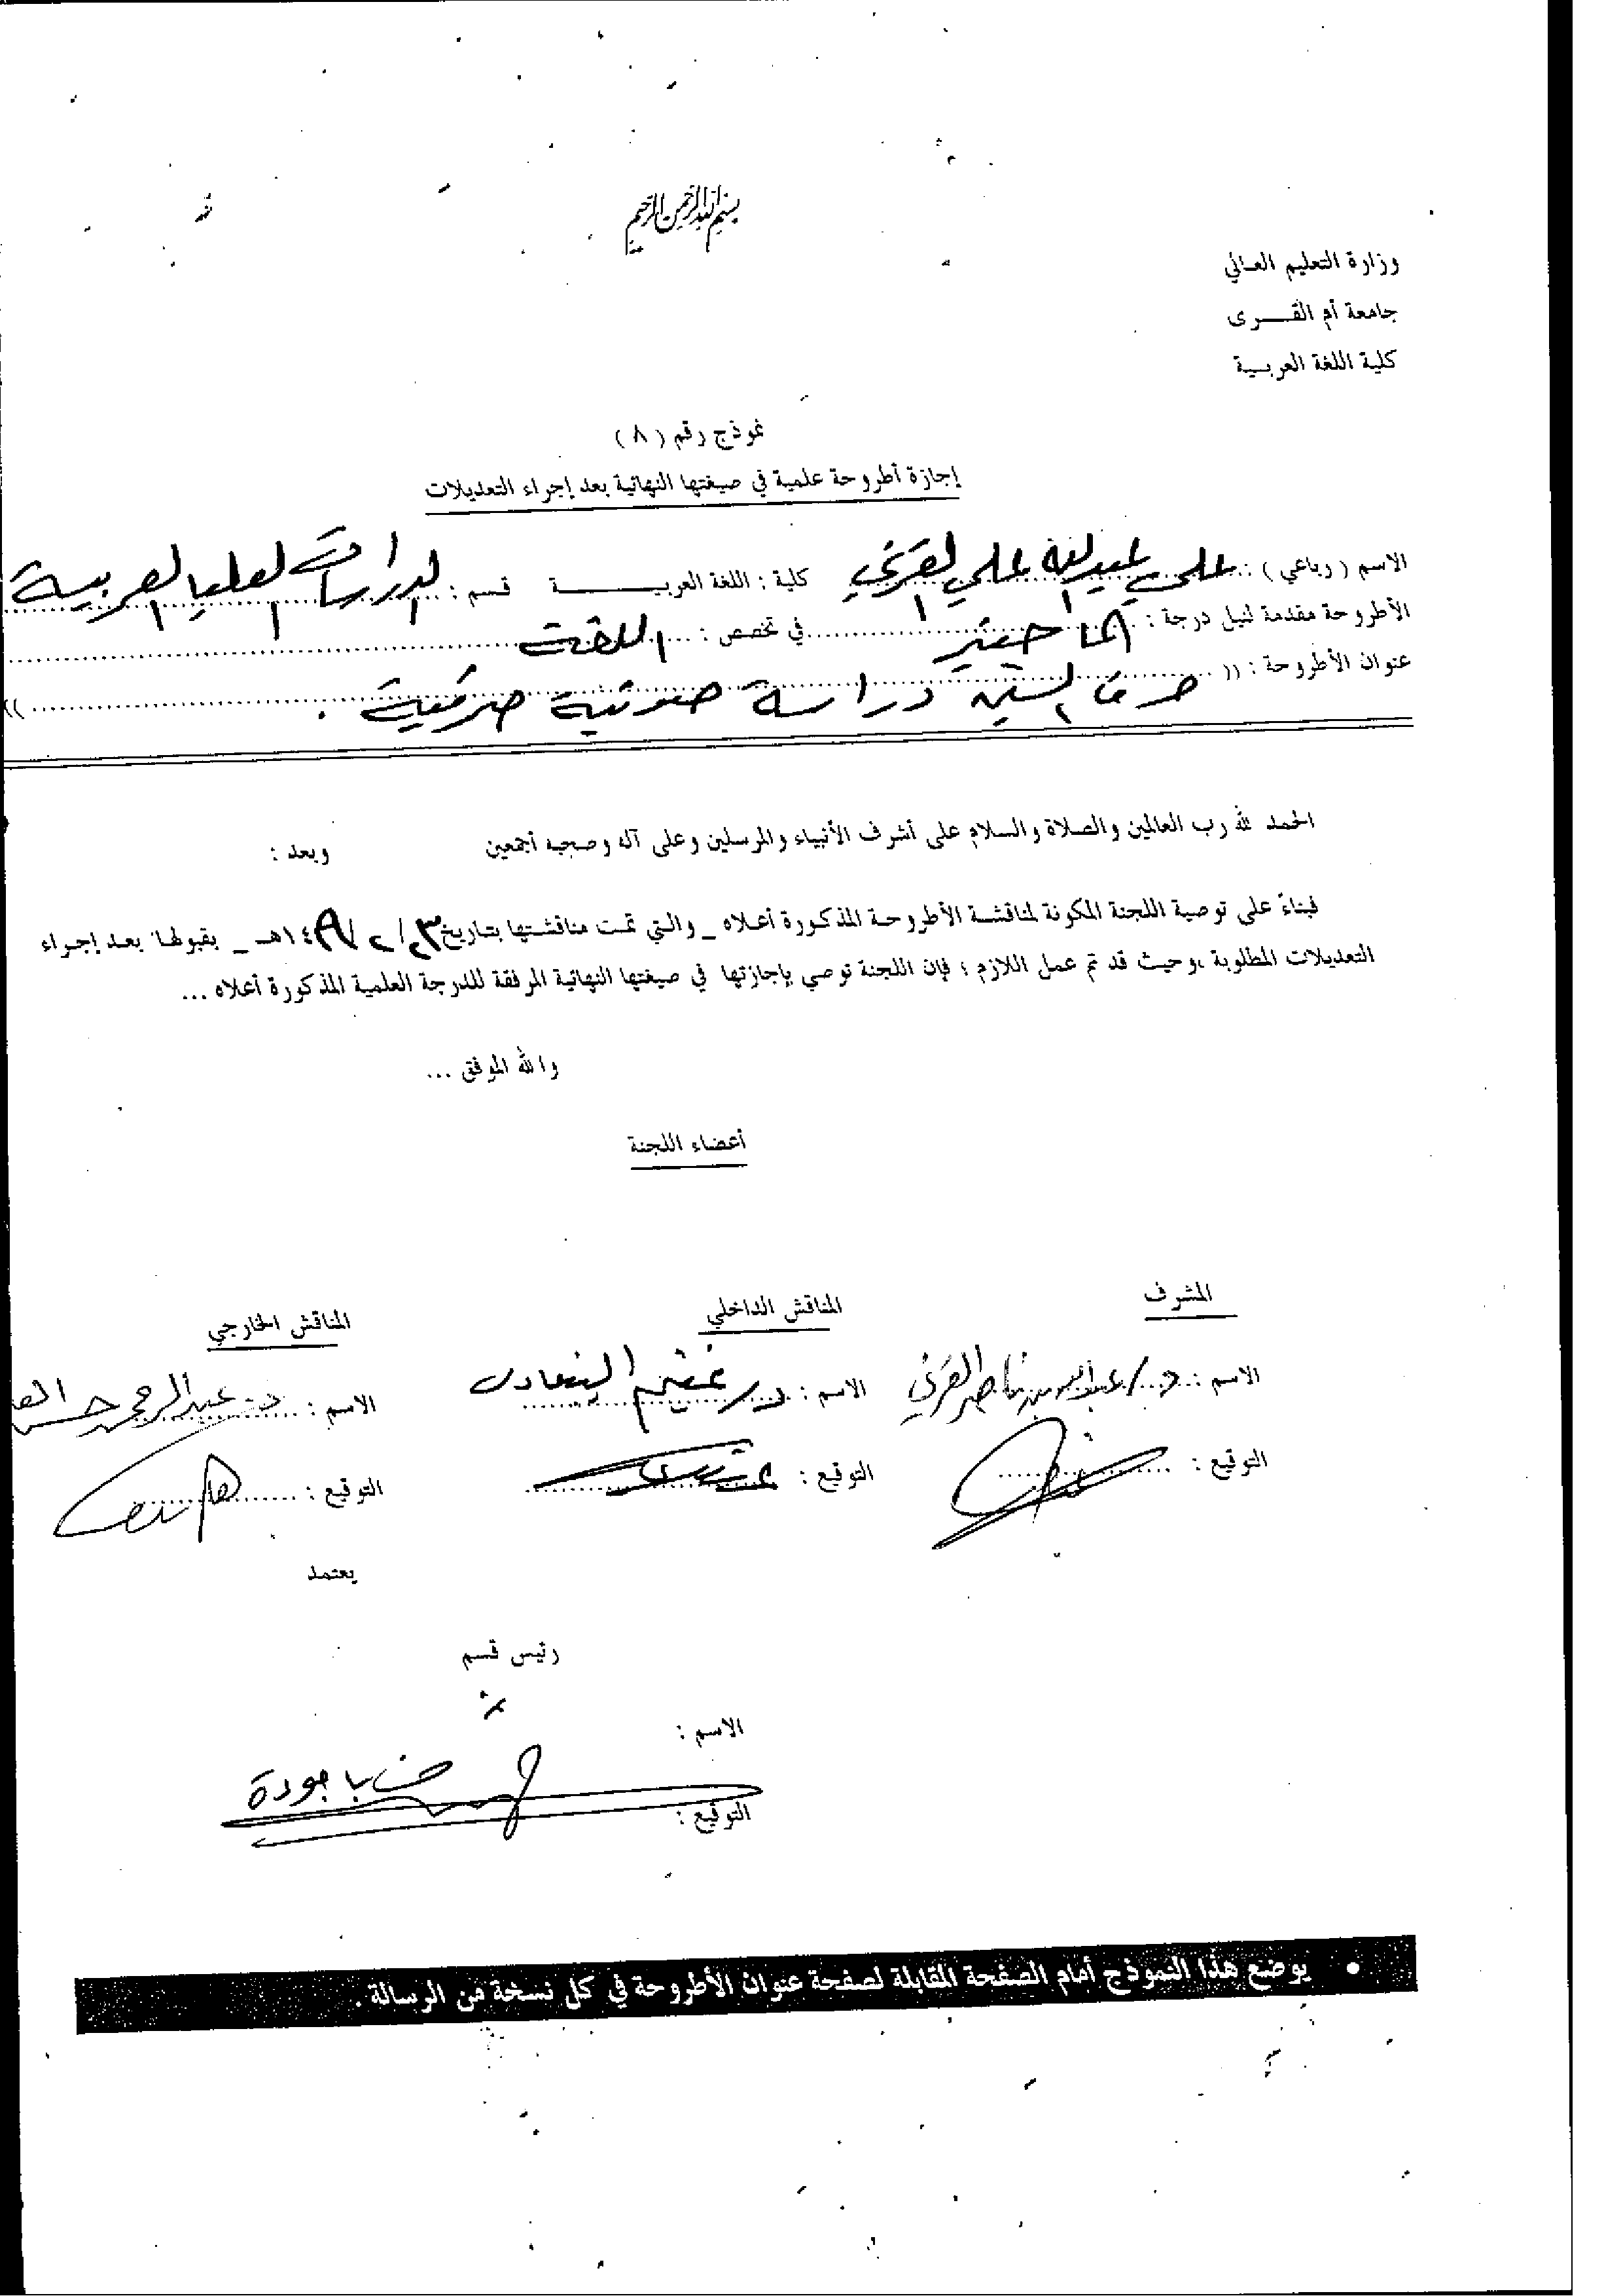 بسم الله الرحمن الرحيم
وزارة التعليم العالي
جامعة أم القــــرى
كلية اللغة العربـية
نموذج رقم ( ٨ )
إجازة أطروحة علمية في صيغتها النهائية بعد إجراء التعديلات
الاسم ( رباعي ) : علي عبدالله علي القرني كلية : اللغة العربـــــــــة قسم : الدراسات العليا العربية
الأطروحة مقدمة لنيل درجة : الماجستير في تخصص : اللغة
عنوان الأطروحة : (( حرف السين دراسة صوتية صرفية . ))
الحمد لله رب العالمين والصلاة والسلام على أشرف الأنبياء والمرسلين وعلى آله وصحبه أجمعين وبعد :
فبناءً على توصية اللجنة المكونة لمناقشة الأطروحة المذكورة أعلاه _ والتي تمت مناقشتها بتاريخ ١٤هـ _ بقبولها بعد إجراء
التعديلات المطلوبة ،وحيث قد تم عمل اللازم ؛ فإن اللجنة توصي بإجازتها في صيغتها النهائية المرفقة للدرجة العلمية المذكورة أعلاه ...
والله الموفق ...
أعضاء اللجنة
المشرف المناقش الداخلي المناقش الخارجي
الاسم : د / عبدالله بن ناصر القرني الاسم : د. غنيم الينبعاوي الاسم : د. عبدالرحمن حسن
التوقيع : التوقيع : التوقيع :
يعتمد
رئيس قسم
الاسم :
حسن باجودة
التوقيع :
• يوضع هذا النموذج أمام الصفحة المقابلة لصفحة عنوان الأطروحة في كل نسخة من الرسالة .